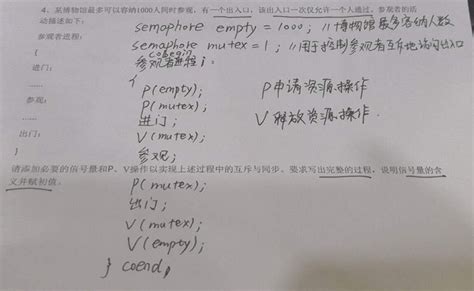 4、某博物馆最多可以容纳1000人同时参观，有一个出入口，该出入口一次仅允许一个人通过。参观者的活
动描述如下：
semophore empty = 1000; //博物馆最多容纳人数
参观者进程：
semaphore mutex = 1; //用于控制参观者互斥地访问出入口
cobegin
参观者进程i:
{
{
进门：
P(empty);
P申请资源操作
……
P(mutex);
V释放资源操作.
参观：
进门;
……
V(mutex);
出门：
参观;
}
请添加必要的信号量和P、V操作以实现上述过程中的互斥与同步。要求写出完整的过程，说明信号量的含
义并赋初值。
P(mutex);
出门;
V(mutex);
V(empty);
} coend